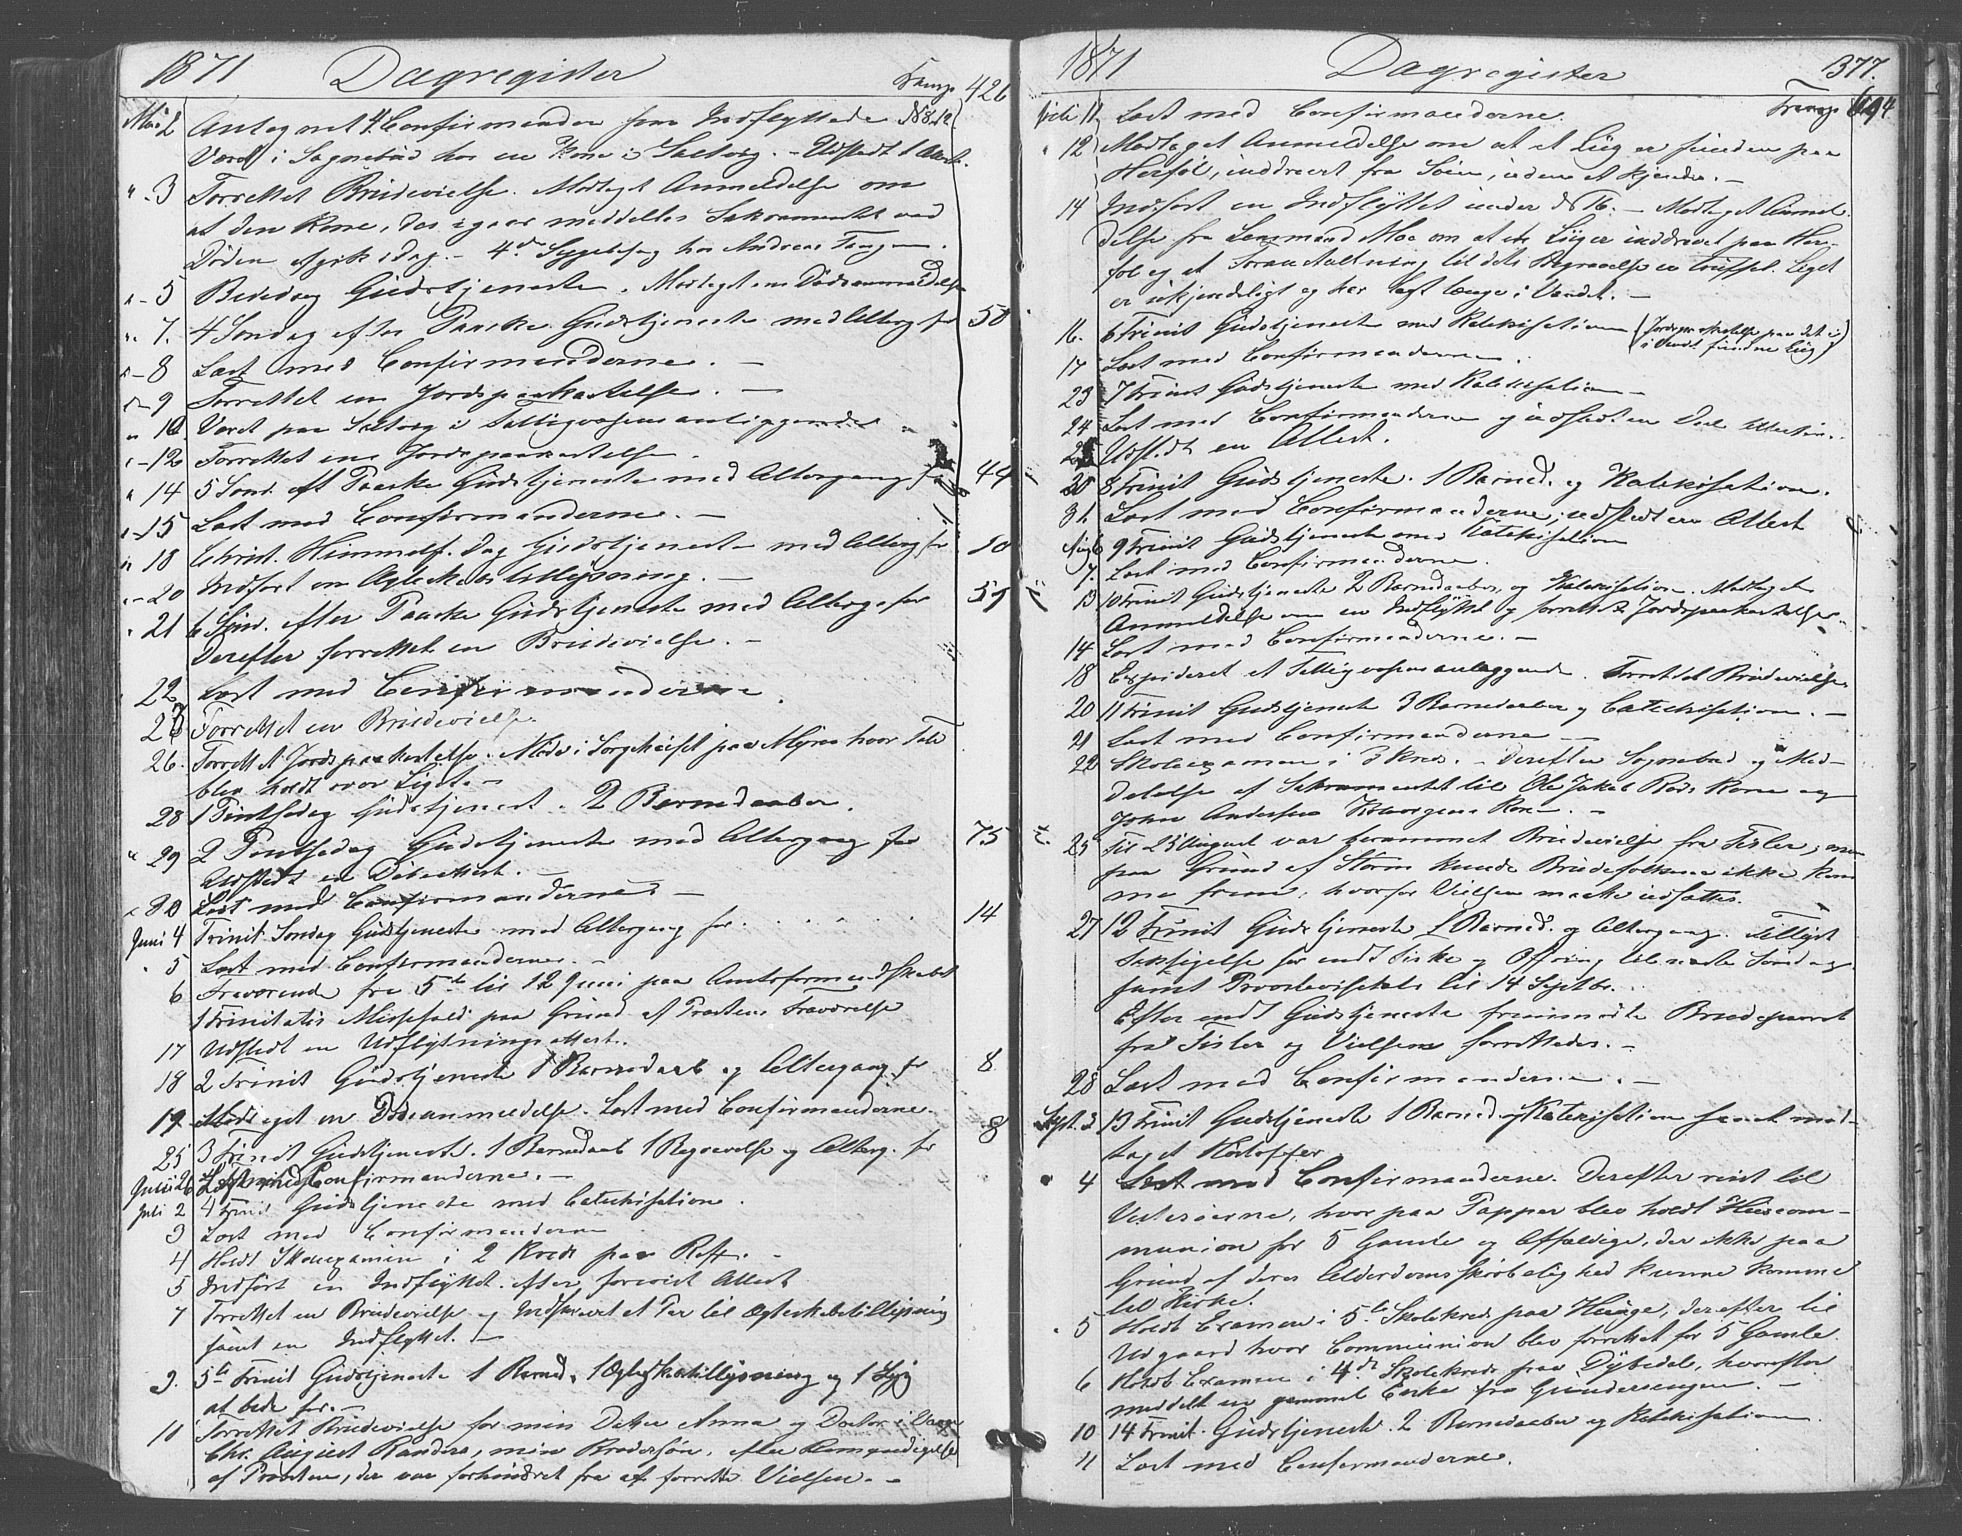 1871 Dagregister
Transp 426
Mai 2 Antegnet 4 Confirmander paa Indflyttede
Været i Sognebud hos en Kone i Salvig. - Udstedt 1 Attest.
" - 3 Forrettet Brudevielse. Modtaget Anmeldelse om
at den Kone, der igaar meddeltes Sakramentet ved
Døden afgik idag. - 4de Sygebesøg hos Andreas Tangen.
" - 5 Bededag Gudstjeneste. Modtaget en Dødsanmeldelse
" - 7. 4 Søndag efter Paaske Gudstjeneste med Alterg for 50
" - 8 Læst med Confirmanderne. -
" - 9 Forrettet en Jordspaakastelse. -
" 10 Været paa Salvig i Fattigvæsensanliggender
" - 12 Forrettet en Jordspaakastelse.
" 14 5 Sønd. eft Paaske Gudstjeneste med Altergang for 44
" - 15 Læst med Confirmanderne. -
" 18 Christi Himmelf. Dag Gudstjeneste med Alterg for 10
" - 20 Indført en Ægteskabstillysning. -
" 21 6 Sønd. efter Paaske Gudstjeneste med Alterg for 55
Derefter forrettet en Brudevielse. -
22 Læst med Confirmanderne.
23 Forrettet en Brudevielse.
26. Forrettet Jordspaakastelse. Møde i Sørgehuset paa hvor Tale
blev holdt over Liget. -
28 1 Pintsedag Gudstjenest. 2 Barnedaaber.
" 29 2 Pintsedag Gudstjeneste med Altergang for 75
Udstedt en Attest. -
" 30 Læst med Confirmanderne. -
Juni 4 Trinit. Søndag Gudstjeneste med Altergang for . . . . . 14
" 5 Læst med Confirmanderne. -
6 Fraværende fra 5te til 12 Juni paa Amtsformandskabet
1 Trinitatis Messefald paa Grund af Præstens Fraværelse
17 Udstedt en Udflytningsattest.
18 2 Trinit Gudstjeneste 1 Barnedaab og Altergang for 8
19 Modtaget en Dødsanmeldelse. Læst med Confirmanderne.
25 3 Trinit Gudstjeneste. 1 Barnedaab 1 Begravelse og Alterg. for 8
Juni 26 Læst med Confirmanderne. -
Juli 2 4 Trinit Gudstjeneste med Catechisation.
3 Læst med Confirmanderne
4 Holdt Skoleexamen i 2 Kreds paa Røff. -
5 Indført en Indflyttet efter foreviist Attest
7 Forrettet en Brudevielse og Indskrevet et Par til Ægteskabstillysning
samt en Indflyttet. -
9. 5te Trinit Gudstjeneste 1 Barned, 1 Ægteskabstillysning og 1 Syg
at bede for. -
10 Forrettet Brudevielse for min Datter Anna og Doctor i
Chr. August Randers, min Brodersøn, efter
af Præsten, der var forhindret fra at forrette Vielsen. -
1871 Dagregister 377.
Transp 694
Juli 11 Læst med Confirmanderne.
" 12 Modtaget Anmeldelse om at et Liig er funden paa
Herføl, inddrevet fra Søen, uden at kjendes. -
14 Indført en Indflyttet under No 16. - Modtaget Anmel-
delse fra Lensmand Moe om at et Liig er inddrevet paa Her-
føl og at Foranstaltning til dets Begravelse er truffet. Liget
er ukjendeligt og har lagt længe i Vandet. -
16. 6 Trinit Gudstjeneste med Katekisation (Jordspaakastelse paa det
i Vandet fundne Liig)
17 Læst med Confirmanderne.
23 7 Trinit Gudstjeneste med Katekisation -
24 Læst med Confirmanderne og udstedt en Deel Attester.
25 Udstedt en Attest.
30 8 Trinit Gudstjeneste. 1 Barned. og Katekisation.
31. Læst med Confirmanderne, udstedt en Attest
Aug 6 9 Trinit Gudstjeneste med Katekisation
7. Læst med Confirmanderne.
13 10 Trinit Gudstjeneste 2 Barnedaaber, og Katekisation. Modtaget
Anmeldelse om en Indflyttet og forrettet Jordspaakastelse.
14 Læst med Confirmanderne. -
18 Expederet et Fattigvæsensanliggende. Forrettet Brudevielse.
20 11 Trinit Gudstjeneste 3 Barnedaaber og Catechisation. -
21 Læst med Confirmanderne -
22 Skoleexamen i 3 Kreds. - Derefter Sognebud og Med-
delelse af Sakramentet til Ole Jakob Røds Kone og
John Andersen Kone. -
25 Til 25 August var berammet Brudevielse fra Tisler, men
paa Grund af Storm kunde Brudefolkene ikke kom
me frem, hvorfor Vielsen maatte udsættes.
27 12 Trinit Gudstjeneste, 1 Barned. og Altergang. Tillyst
Taksigelse for endt Fiske og Offring til næste Søndag
samt Provstevisitats til 14 Septbr.
Efter endt Gudstjeneste fremmødte Brudeparret
fra Tisler og Vielsen forrettedes. -
28 Læst med Confirmanderne. -
Sept. 3 13 Trinit Gudstjeneste 1 Barned og Katekisation samt mod-
taget
" 4 Læst med Confirmanderne. Derefter reist til
Vesterøerne, hvor paa Papper blev holdt Huuscom-
munion for 5 Gamle og Affældige, der ikke paa
Grund af deres Alderdomsskrøbelighed kunne komme
til Kirke.
" 5 Holdt Examen i 5te Skolekreds paa Hauge, derefter til
Udgaard hvor Communion blev forrettet for 5 Gamle
6 Holdt Examen i 4de Skolekreds paa Dybedal, hvorefter
meddelt en gammel Enke fra -
10 14 Trinit. Gudstjeneste. 2 Barnedaaber og Katekisation.
11 Læst med Confirmanderne.